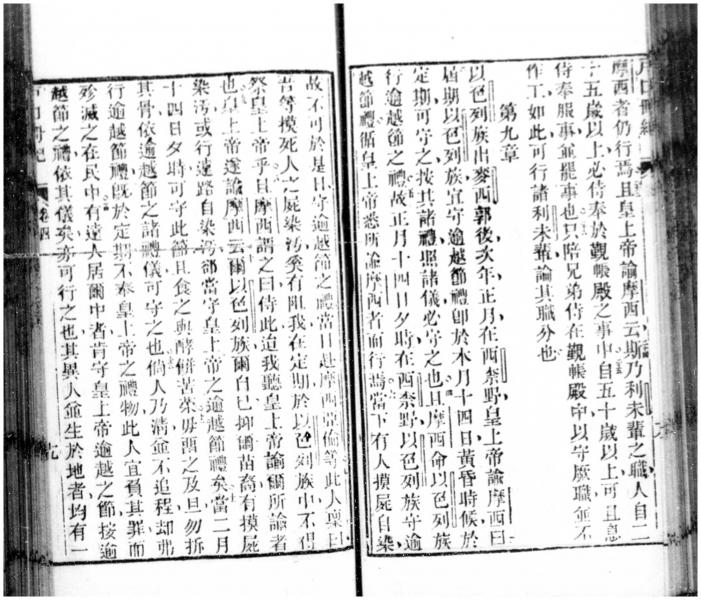 摩西者仍行焉且皇上帝諭摩西云斯乃利未輩之職人自二
十五歲以上必侍奉於觀帳殿之事中自五十歲以上可且息
侍奉服事並罷事也只陪兄弟侍在觀帳殿中以守厥職並不
作工如此可行諸利未輩論其職分也
第九章
以色列族出麥西郭後次年正月在西柰野皇上帝諭摩西曰
屆期以色列族宜守逾越節禮卽於本月十四日黃昏時候於
定期可守之按其諸禮照諸儀必守之也且摩西命以色列族
行逾越節之禮故正月十四日夕時在西柰野以色列族守逾
越節禮循皇上帝悉所諭摩西者而行焉當下有人摸屍自染
故不可於是日守逾越節之禮當日赴摩西亞倫等此人稟曰
吾等摸死人之屍染汚奚有阻我在定期於以色列族中不得
祭皇上帝乎且摩西謂之曰侍此迨我聽皇上帝諭爾所諭者
也皇上帝遂諭摩西云爾以色列族爾自己抑爾苗裔有摸屍
染汚或行遠路自染汚都當守皇上帝之逾越節禮矣當二月
十四日夕時可守此節且食之與酵餅苦菜毋畱之及旦勿拆
其骨依逾越節之諸禮儀可守之也倘人乃清並不追程却弗
行逾越節禮旣於定期不奉皇上帝之禮物此人宜負其罪而
殄滅之在民中有遠人居爾中者肯守皇上帝逾越之節按逾
越節之禮依其儀矣亦可行之也其異人並生於地者均有一
卷四